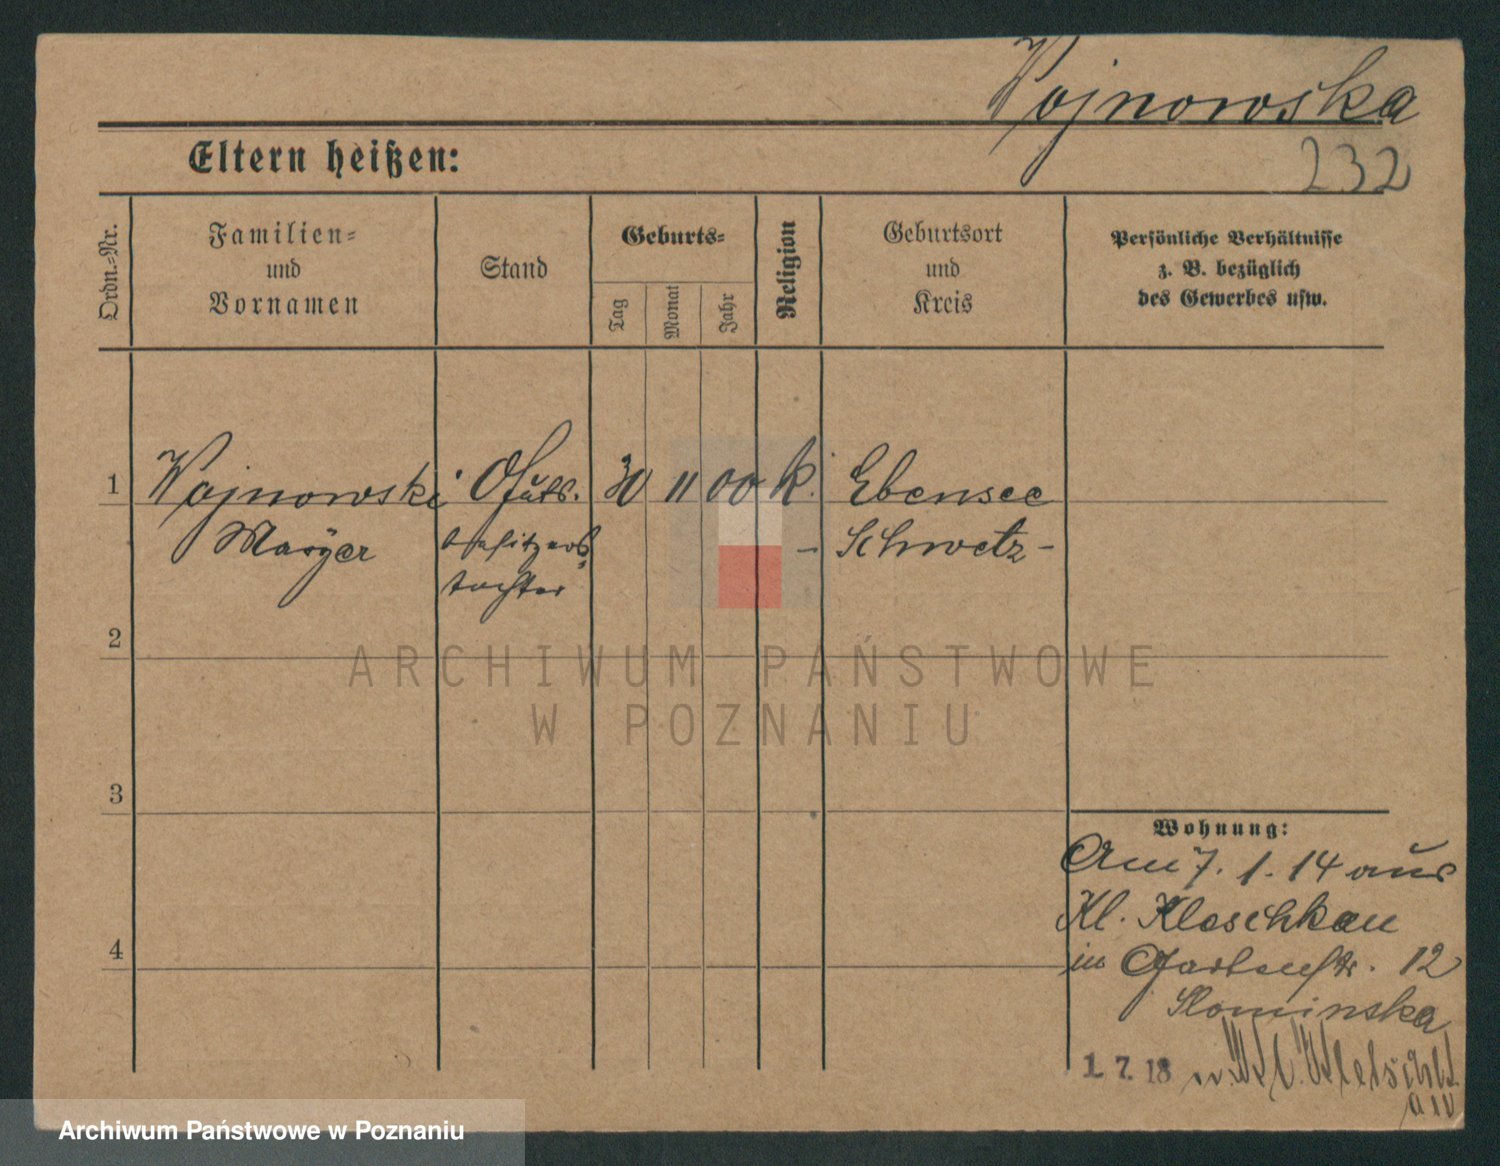 Wojnowska
Eltern heißen:
232
Ordn.=Nr.
Familien=
und
Vornamen
Stand
Geburts=
Tag
Monat
Jahr
Religion
Geburtsort
und
Kreis
Persönliche Verhältnisse
z. B. bezüglich
des Gewerbes usw.
1
Wojnowski Guts.
30 11 00 k. Ebensee
besitzers
- Schwetz -
tochter
2
3
4
Wohnung:
Am 7. 1. 14 aus
Kl. Kleschkau
in Gartenstr. 12
Slominska
1. 7. 18
ARCHIWUM PAŃSTWOWE
W POZNANIU
Archiwum Państwowe w Poznaniu